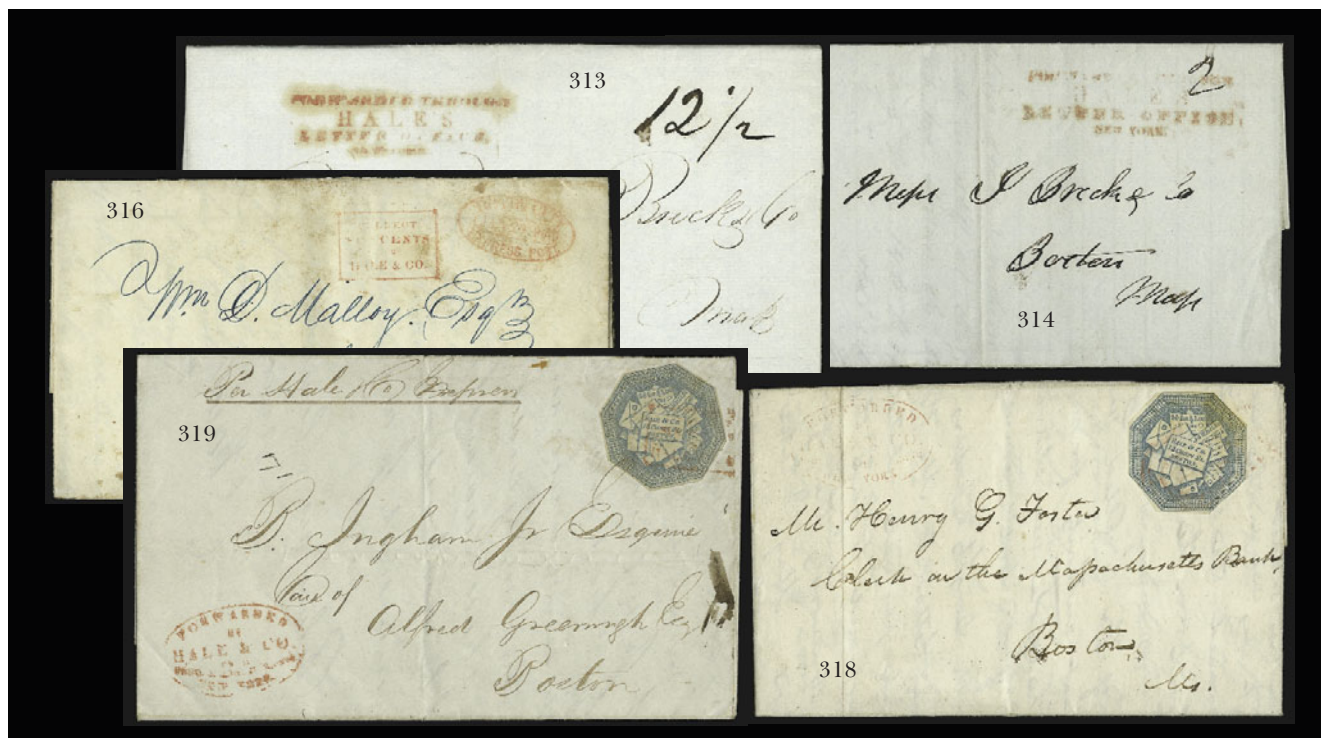 313
FORWARDED THROUGH
HALE'S
LETTER OFFICE,
12 1/2
Bricks & Co
314
2
LETTER OFFICE,
NEW YORK.
Messrs I Bricks & Co
Boston
Mass
316
COLLECT
CENTS
HALE & CO.
Wm D. Malloy. Esqr
319
Per Hale & Co Express
HALE & CO.
B. Ingham Jr Esquire
Care of
Alfred Greenough Esq
Boston
FORWARDED
BY
HALE & CO.
NEW YORK.
318
FORWARDED
HALE & CO.
NEW YORK
HALE & CO.
Mr. Henry G. Foster
Clerk in the Massachusetts Bank,
Boston,
Ms.